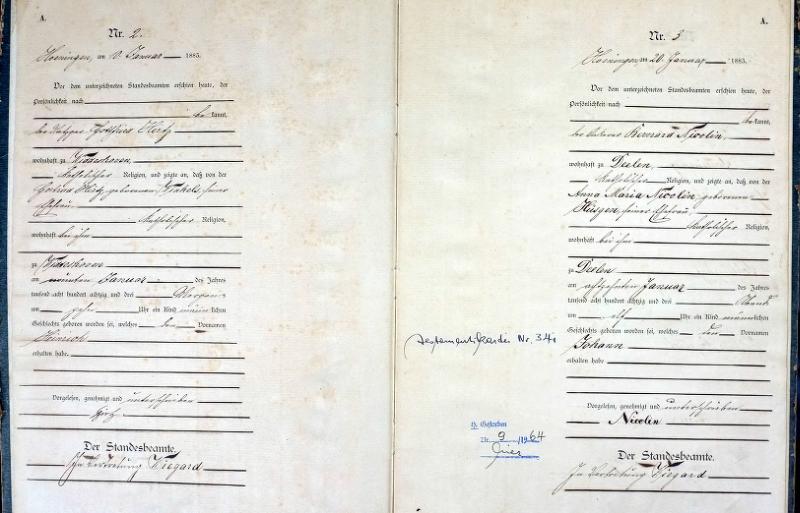 A.
Nr. 2.
Hoeningen, am 10. Januar 1883.
Vor dem unterzeichneten Standesbeamten erschien heute, der
Persönlichkeit nach
be kannt,
der Gottfried Hertz
wohnhaft zu
katholischer Religion, und zeigte an, daß von der
Hertz geborenen seiner
Ehefrau
katholischer Religion,
wohnhaft bei ihm
zu
am neunten Januar des Jahres
tausend acht hundert achtzig und drei Morgens
um zehn Uhr ein Kind männlichen
Geschlechts geboren worden sei, welches den Vornamen
Heinrich
erhalten habe.
Vorgelesen, genehmigt und unterschrieben
Der Standesbeamte.
In Vertretung Wiegard
A.
Nr. 3
Hoeningen, am 20. Januar 1883.
Vor dem unterzeichneten Standesbeamten erschien heute, der
Persönlichkeit nach
be kannt,
der Ackerer Bernard Nicolin,
wohnhaft zu Deelen,
katholischer Religion, und zeigte an, daß von der
Anna Maria Nicolin, geborenen
Hüsgen, seiner Ehefrau,
katholischer Religion,
wohnhaft bei ihm
zu Deelen
am achtzehnten Januar des Jahres
tausend acht hundert achtzig und drei Abends
um elf Uhr ein Kind männlichen
Geschlechts geboren worden sei, welches den Vornamen
Johann
erhalten habe
Vorgelesen, genehmigt und unterschrieben
Nicolin
Der Standesbeamte.
In Vertretung Wiegard
Testamentskartei Nr. 340
Gestorben
Nr. 9 /1964